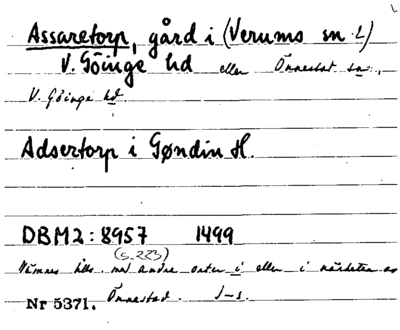 Assaretorp, gård i (Verums sn L)
V. Göinge hd eller Önnestad sn,
V. Göinge hd.
Adsertorp i Gøndin H.
DBM2: 8957 1499
(s. 223)
Nämnes tills. med andra orter i eller i närheten av
Nr 5371. Önnestad. J-s.